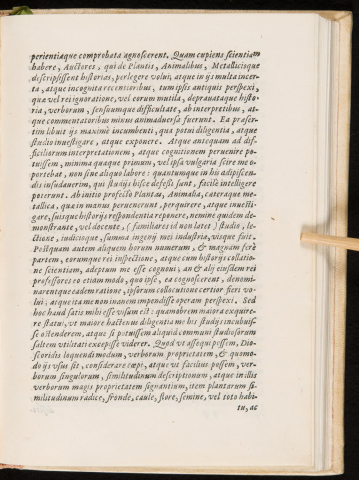 perientiaque comprobata agnoscerent. Quam cupiens scientiam
habere, Auctores, qui de Plantis, Animalibus, Metallicisque
descripsissent historias, perlegere volui, atque in ijs multa incer-
ta, atque incognita recentioribus, tum ipsis antiquis perspexi,
qua vel rei ignoratione, vel eorum mutila, deprauataque histo-
ria, verborum, sensuumque difficultate, ab interpretibus, at-
que commentatoribus minus animaduersa fuerunt. Ea praeser-
tim libuit ijs maximè incumbenti, qua potui diligentia, atque
studio inuestigare, atque exponere. Atque antequam ad dif-
ficiliorum interpretationem, atque cognitionem peruenire po-
tuissem, minima quaque primum, vel ipsa vulgaria scire me o-
portebat, non sine aliquo labore: quantumque in his adipiscen-
dis insudauerim, qui studijs hisce defessi sunt, facile intelligere
poterunt. Ab initio profectò Plantas, Animalia, cateraque me-
tallica, qua in manus peruenerunt, perquirere, atque inuesti-
gare, suisque historijs respondentia reponere, nemine quidem de-
monstrante, vel docente, (familiares id non latet) studio, le-
ctione, iudicioque, summa ingenij mei industria, visque fuit.
Postquam autem aliquem horum numerum, & magnam ferè
partem, eorumque rei inspectione, atque cum historijs collatio-
ne scientiam, adeptum me esse cognoui; an & alij eiusdem rei
professores eo etiam modo, quo ipse, ea cognoscerent, denomi-
narentque eadem ratione, ipsorum collocutione certior fieri vo-
lui; atque ita me non inanem impendisse operam perspexi. Sed
hoc haud satis mihi esse visum est: quamobrem maiora exquire-
re statui, vt maiore hactenus diligentia me his studijs incubuis-
se ostenderem, atque si potuissem aliquid communi studiosorum
saltem vtilitati excepisse viderer. Quod vt assequi possem, Dio-
scoridis loquendi modum, verborum proprietatem, & quomo-
do ijs vsus sit, considerare coepi, atque vt facilius possem, ver-
borum singulorum, similitudinum descriptionum, atque in illis
verborum magis proprietatem signantium, item plantarum si-
militudinum radice, fronde, caule, flore, semine, vel toto habi-
tu, ac